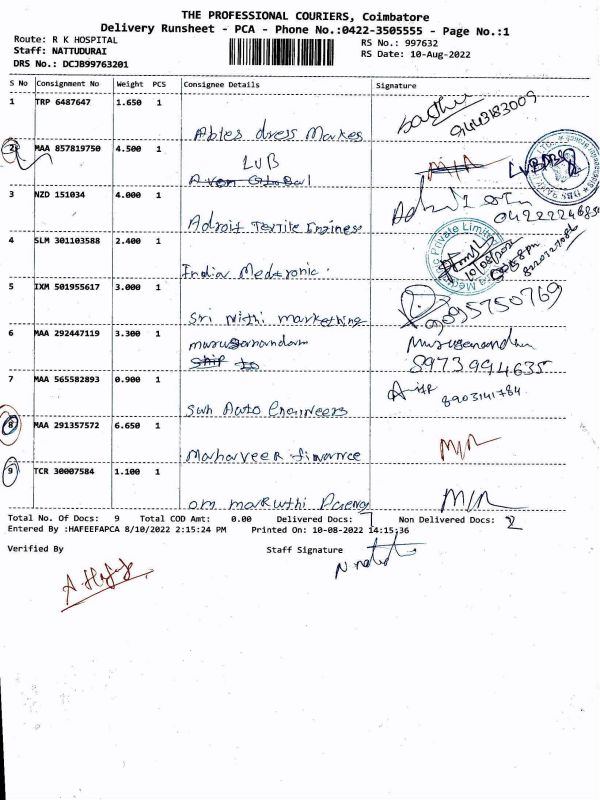 THE PROFESSIONAL COURIERS, Coimbatore
Delivery Runsheet - PCA - Phone No.:0422-3505555 - Page No.:1
Route: R K HOSPITAL
RS No.: 997632
Staff: NATTUDURAI
RS Date: 10-Aug-2022
DRS No.: DCJB99763201
S No Consignment No Weight PCS Consignee Details Signature
1 TRP 6487647 1.650 1
Ables dress Makes
9443183009
2 MAA 857819750 4.500 1
LVB
3 NZD 151034 4.000 1
Adroit Textile Engines
4 SLM 301103588 2.400 1
India Medtronic
10/08/2022
5 IXM 501955617 3.000 1
Sri Nithi markething
6 MAA 292447119 3.300 1
Ship to
8973994635
7 MAA 565582893 0.900 1
Sun Auto Engineers
8903141784
8 MAA 291357572 6.650 1
Mahaveer finance
9 TCR 30007584 1.100 1
om maruthi
Total No. Of Docs: 9 Total COD Amt: 0.00 Delivered Docs: 7 Non Delivered Docs: 2
Entered By :HAFEEFAPCA 8/10/2022 2:15:24 PM Printed On: 10-08-2022 14:15:36
Verified By Staff Signature